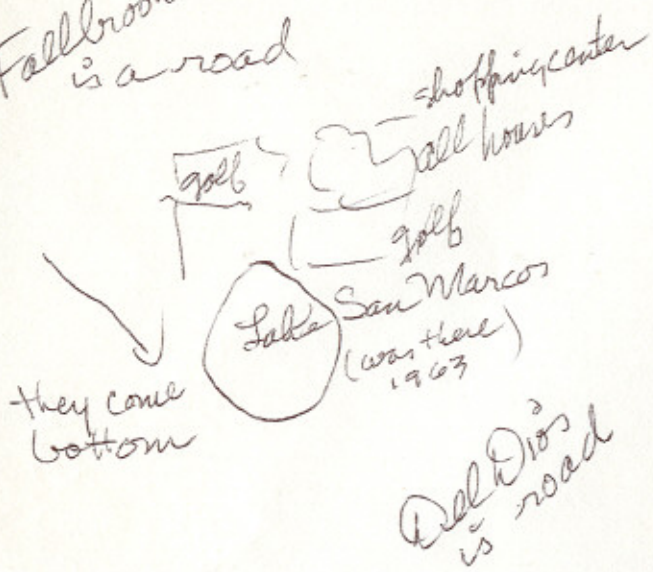 Fallbrook
is a road
shopping center
all houses
golf
golf
Lake San Marcos
(was there)
1963
they come
bottom
Del Dios
is road